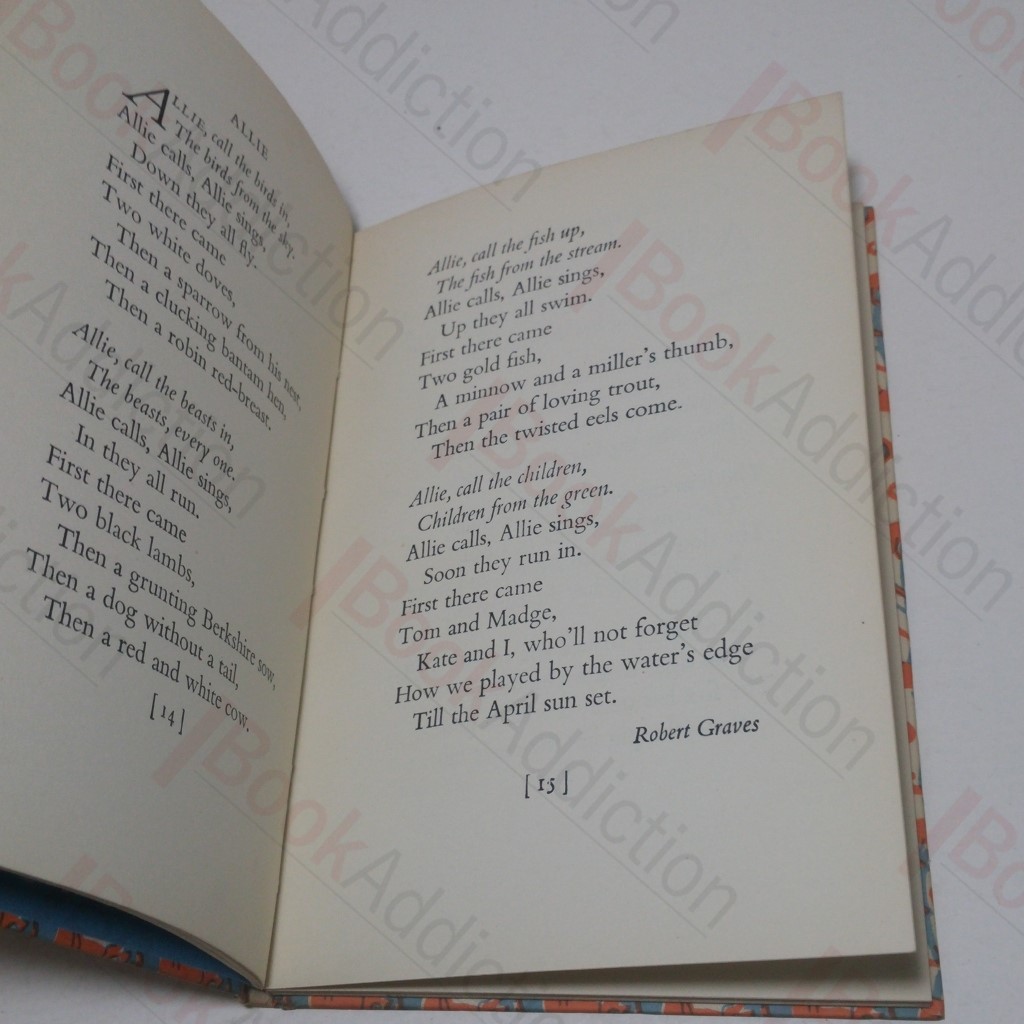 ALLIE
ALLIE, call the birds in,
The birds from the sky.
Allie calls, Allie sings,
Down they all fly.
First there came
Two white doves,
Then a sparrow from his nest,
Then a clucking bantam hen,
Then a robin red-breast.
Allie, call the beasts in,
The beasts, every one.
Allie calls, Allie sings,
In they all run.
First there came
Two black lambs,
Then a grunting Berkshire sow,
Then a dog without a tail,
Then a red and white cow.
[14]
Allie, call the fish up,
The fish from the stream.
Allie calls, Allie sings,
Up they all swim.
First there came
Two gold fish,
A minnow and a miller's thumb,
Then a pair of loving trout,
Then the twisted eels come.
Allie, call the children,
Children from the green.
Allie calls, Allie sings,
Soon they run in.
First there came
Tom and Madge,
Kate and I, who'll not forget
How we played by the water's edge
Till the April sun set.
Robert Graves
[15]
BookAddiction